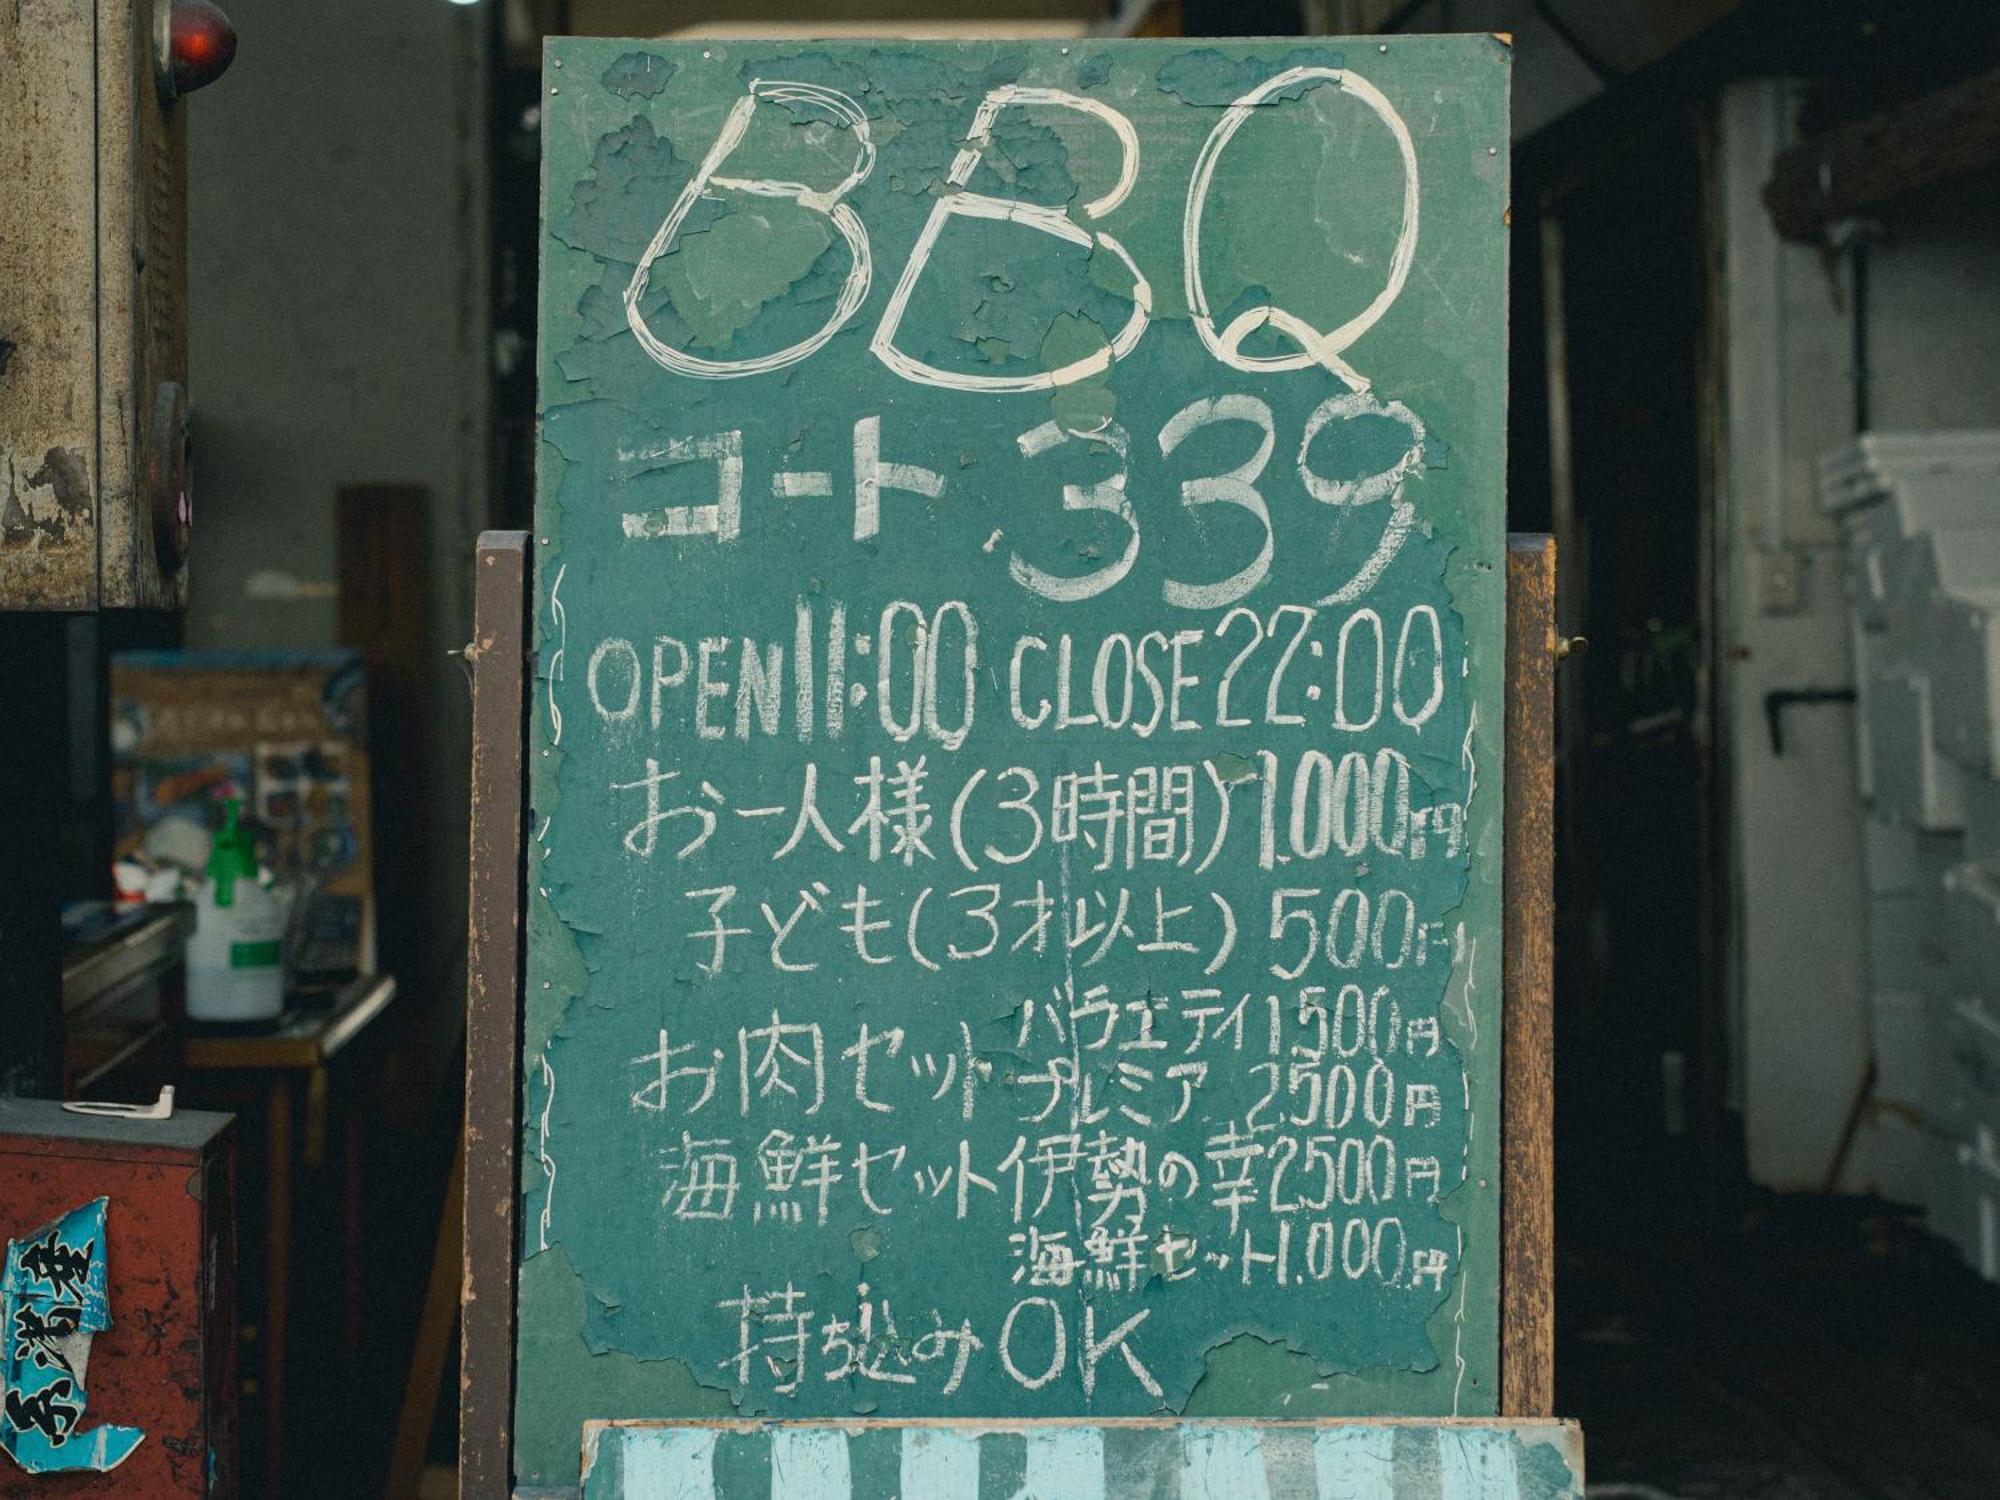 BBQ
コート339
OPEN11:00 CLOSE22:00
お一人様(3時間)1.000円
子ども(3才以上)500円
お肉セット バラエティ1500円
プレミア 2500円
海鮮セット伊勢の幸2500円
海鮮セット1.000円
持ち込みOK